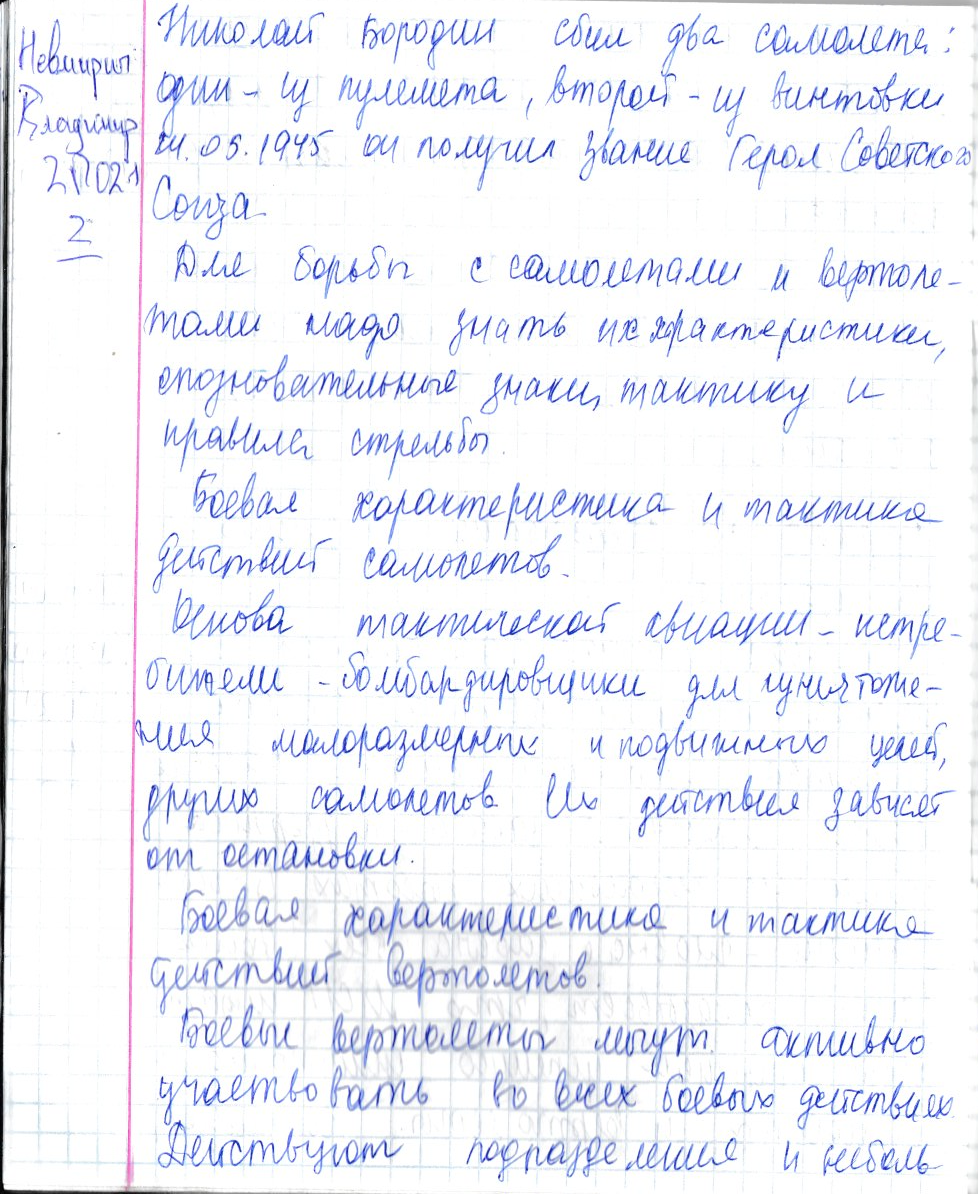 Невмирич
Владимир
2П021
2
Николай Бородин сбил два самолета:
один - из пулемета, второй - из винтовки
24.05.1945 он получил звание Героя Советского
Союза
Для борьбы с самолетами и вертоле-
тами надо знать их храктеристики,
опозновательные знаки, тактику и
правила стрельбы.
Боевая характеристика и тактика
действий самолетов.
Основа тактической авиации - истре-
бители - бомбардировщики для уничтоже-
ния малоразмерных и подвижных целей,
других самолетов Их действия зависят
от остановки.
Боевая характеристика и тактика
действий вертолетов.
Боевые вертолеты могут активно
участвовать во всех боевых действиях
Действуют подразделения и неболь